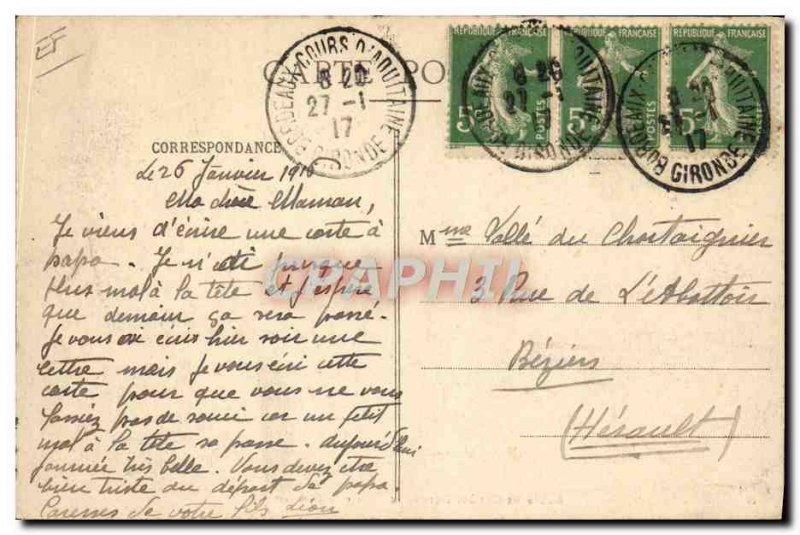 CARTE PO
REPUBLIQUE FRANÇAISE
REPUBLIQUE FRANÇAISE
REPUBLIQUE FRANÇAISE
POSTES
POSTES
POSTES
5
5
5
BORDEAUX-COURS D'AQUITAINE
8 20
27 -1
17
GIRONDE
BORDEAUX
8 20
27 -1
GIRONDE
BORDEAUX
AQUITAINE
17
GIRONDE
CORRESPONDANCE
Le 26 Janvier
Ma chère Maman,
Je viens d'écrire une carte à
papa. Je n'ai presque
plus mal à la tête et j'espère
que demain ça sera passé.
Je vous ai écris hier soir une
lettre mais je vous écri cette
carte pour que vous ne vous
fassiez pas de souci car un petit
mal à la tête sa passe. Aujourd'hui
journée très belle. Vous devez être
bien triste du départ de papa.
Caresses de votre fils Léon
CPAPHIL
Mme Vallé du Chastaignier
3 Rue de L'Abattoir
Béziers
(Hérault)